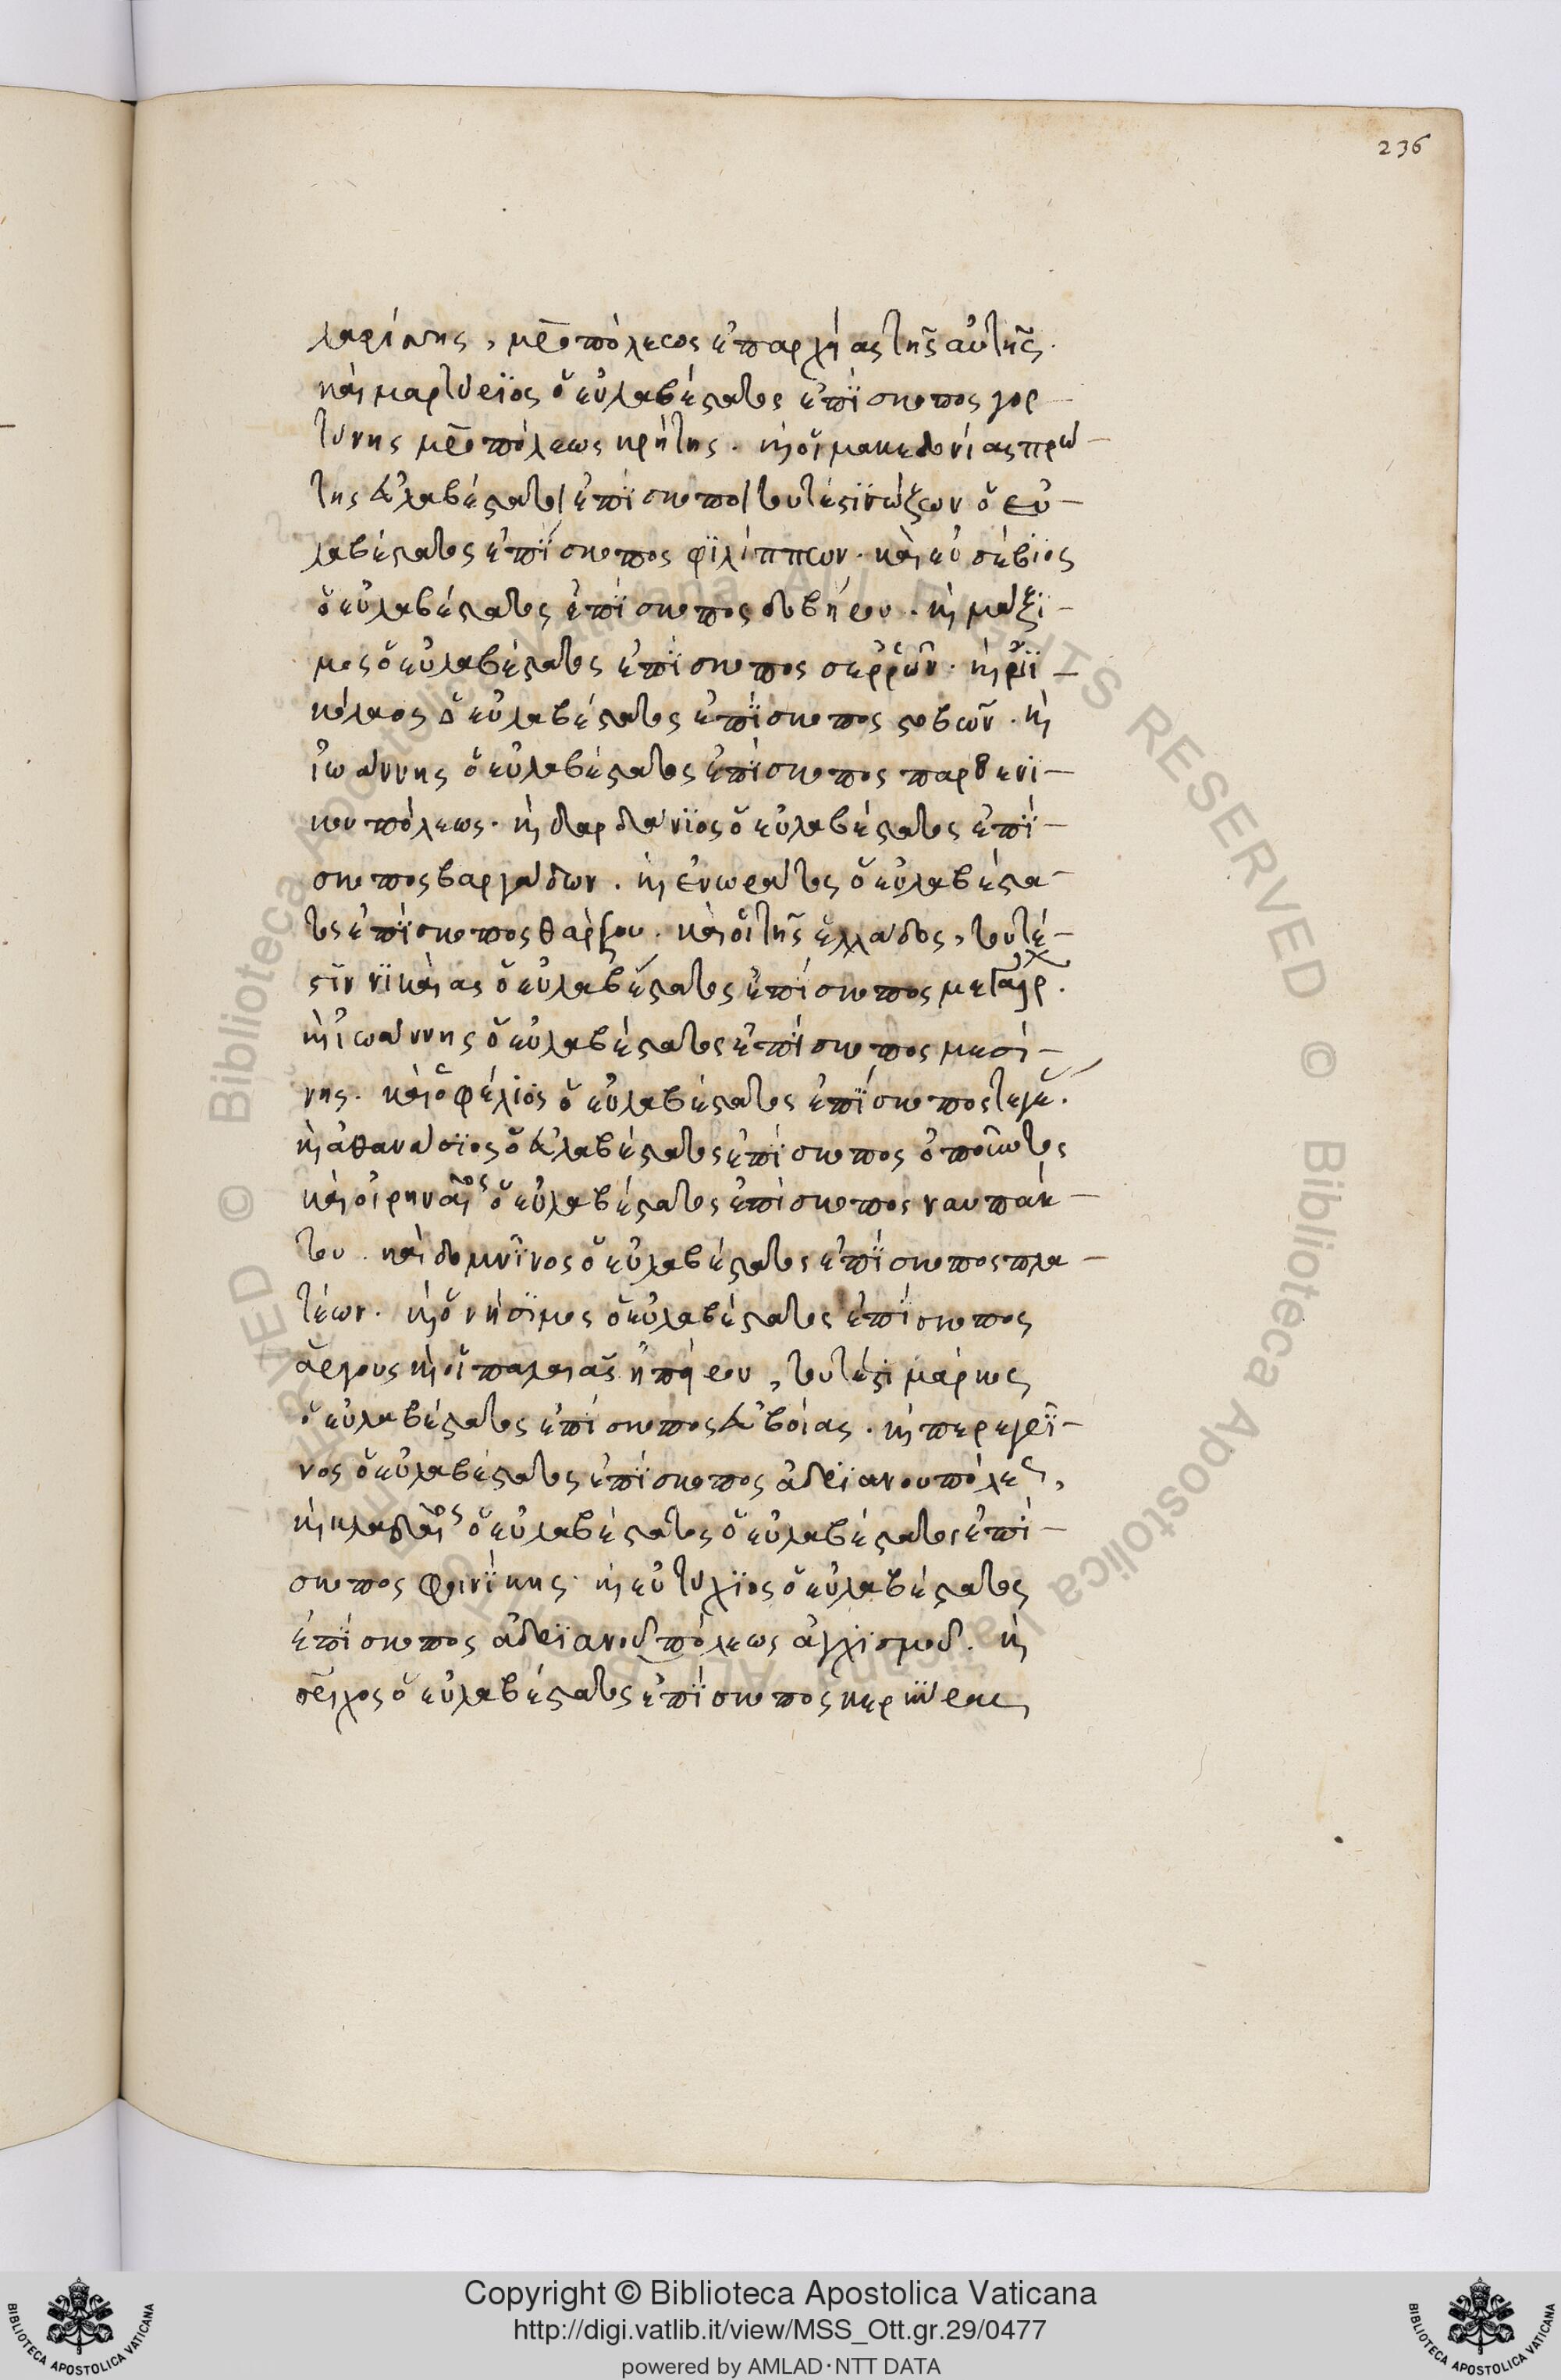 236
λαρίσσης, μρ̅οπόλεως ἐπαρχίας τῆς αὐτῆς.
καὶ μαρτύριος ὁ εὐλαβέστατος ἐπίσκοπος γορ–
τύνης μρ̅οπόλεως κρήτης. κ̀ οἱ μακεδονίας πρώ–
της εὐλαβέστατοι ἐπίσκοποι τουτέστιν σώζων ὁ εὐ–
λαβέστατος ἐπίσκοπος φιλίππων. καὶ εὐσέβιος
ὁ εὐλαβέστατος ἐπίσκοπος δοβήρου. κ̀ μάξι–
μος ὁ εὐλαβέστατος ἐπίσκοπος σερρῶν. κ̀
κόλαος ὁ εὐλαβέστατος ἐπίσκοπος στοβῶν. κ̀
ἰωάννης ὁ εὐλαβέστατος ἐπίσκοπος παρθενι–
κουπόλεως. κ̀ δαρδάνιος ὁ εὐλαβέστατος ἐπί–
σκοπος βαργάδων. κ̀ ὁ εὐλαβέστα–
τος ἐπίσκοπος θάρσου. καὶ οἱ τῆς ἑλλάδος, τουτέ–
στιν νικαίας ὁ εὐλαβέστατος ἐπίσκοπος μεγάρ.
κ̀ ἰωάννης ὁ εὐλαβέστατος ἐπίσκοπος μεσί–
νης. καὶ ὀφέλιος ὁ εὐλαβέστατος ἐπίσκοπος τεγέ.
κ̀ ἀθανάσιος ὁ εὐλαβέστατος ἐπίσκοπος ὀποῦντος
καὶ οἰρηναῖος ὁ εὐλαβέστατος ἐπίσκοπος ναυπάκ–
του. καὶ δομνῖνος ὁ εὐλαβέστατος ἐπίσκοπος πλα–
τέων. κ̀ ὀνήσιμος ὁ εὐλαβέστατος ἐπίσκοπος
ἄργους κ̀ οἱ παλαιᾶς ἠπήρου, τουτέστι μάρκος
ὁ εὐλαβέστατος ἐπίσκοπος εὐβοίας. κ̀ περεγρῖ–
νος ὁ εὐλαβέστατος ἐπίσκοπος ἀδριανουπόλεως,
κ̀ κλαδαῖος ὁ εὐλαβέστατος ὁ εὐλαβέστατος ἐπί–
σκοπος φοινίκης. κ̀ εὐτύχιος ὁ εὐλαβέστατος
ἐπίσκοπος ἀδριανοῦ πόλεως ἀγχισμοῦ. κ̀
ὁ εὐλαβέστατος ἐπίσκοπος κερκύρας
Copyright © Biblioteca Apostolica Vaticana
http://digi.vatlib.it/view/MSS_Ott.gr.29/0477
powered by AMLAD·NTT DATA
BIBLIOTECA APOSTOLICA VATICANA
BIBLIOTECA APOSTOLICA VATICANA